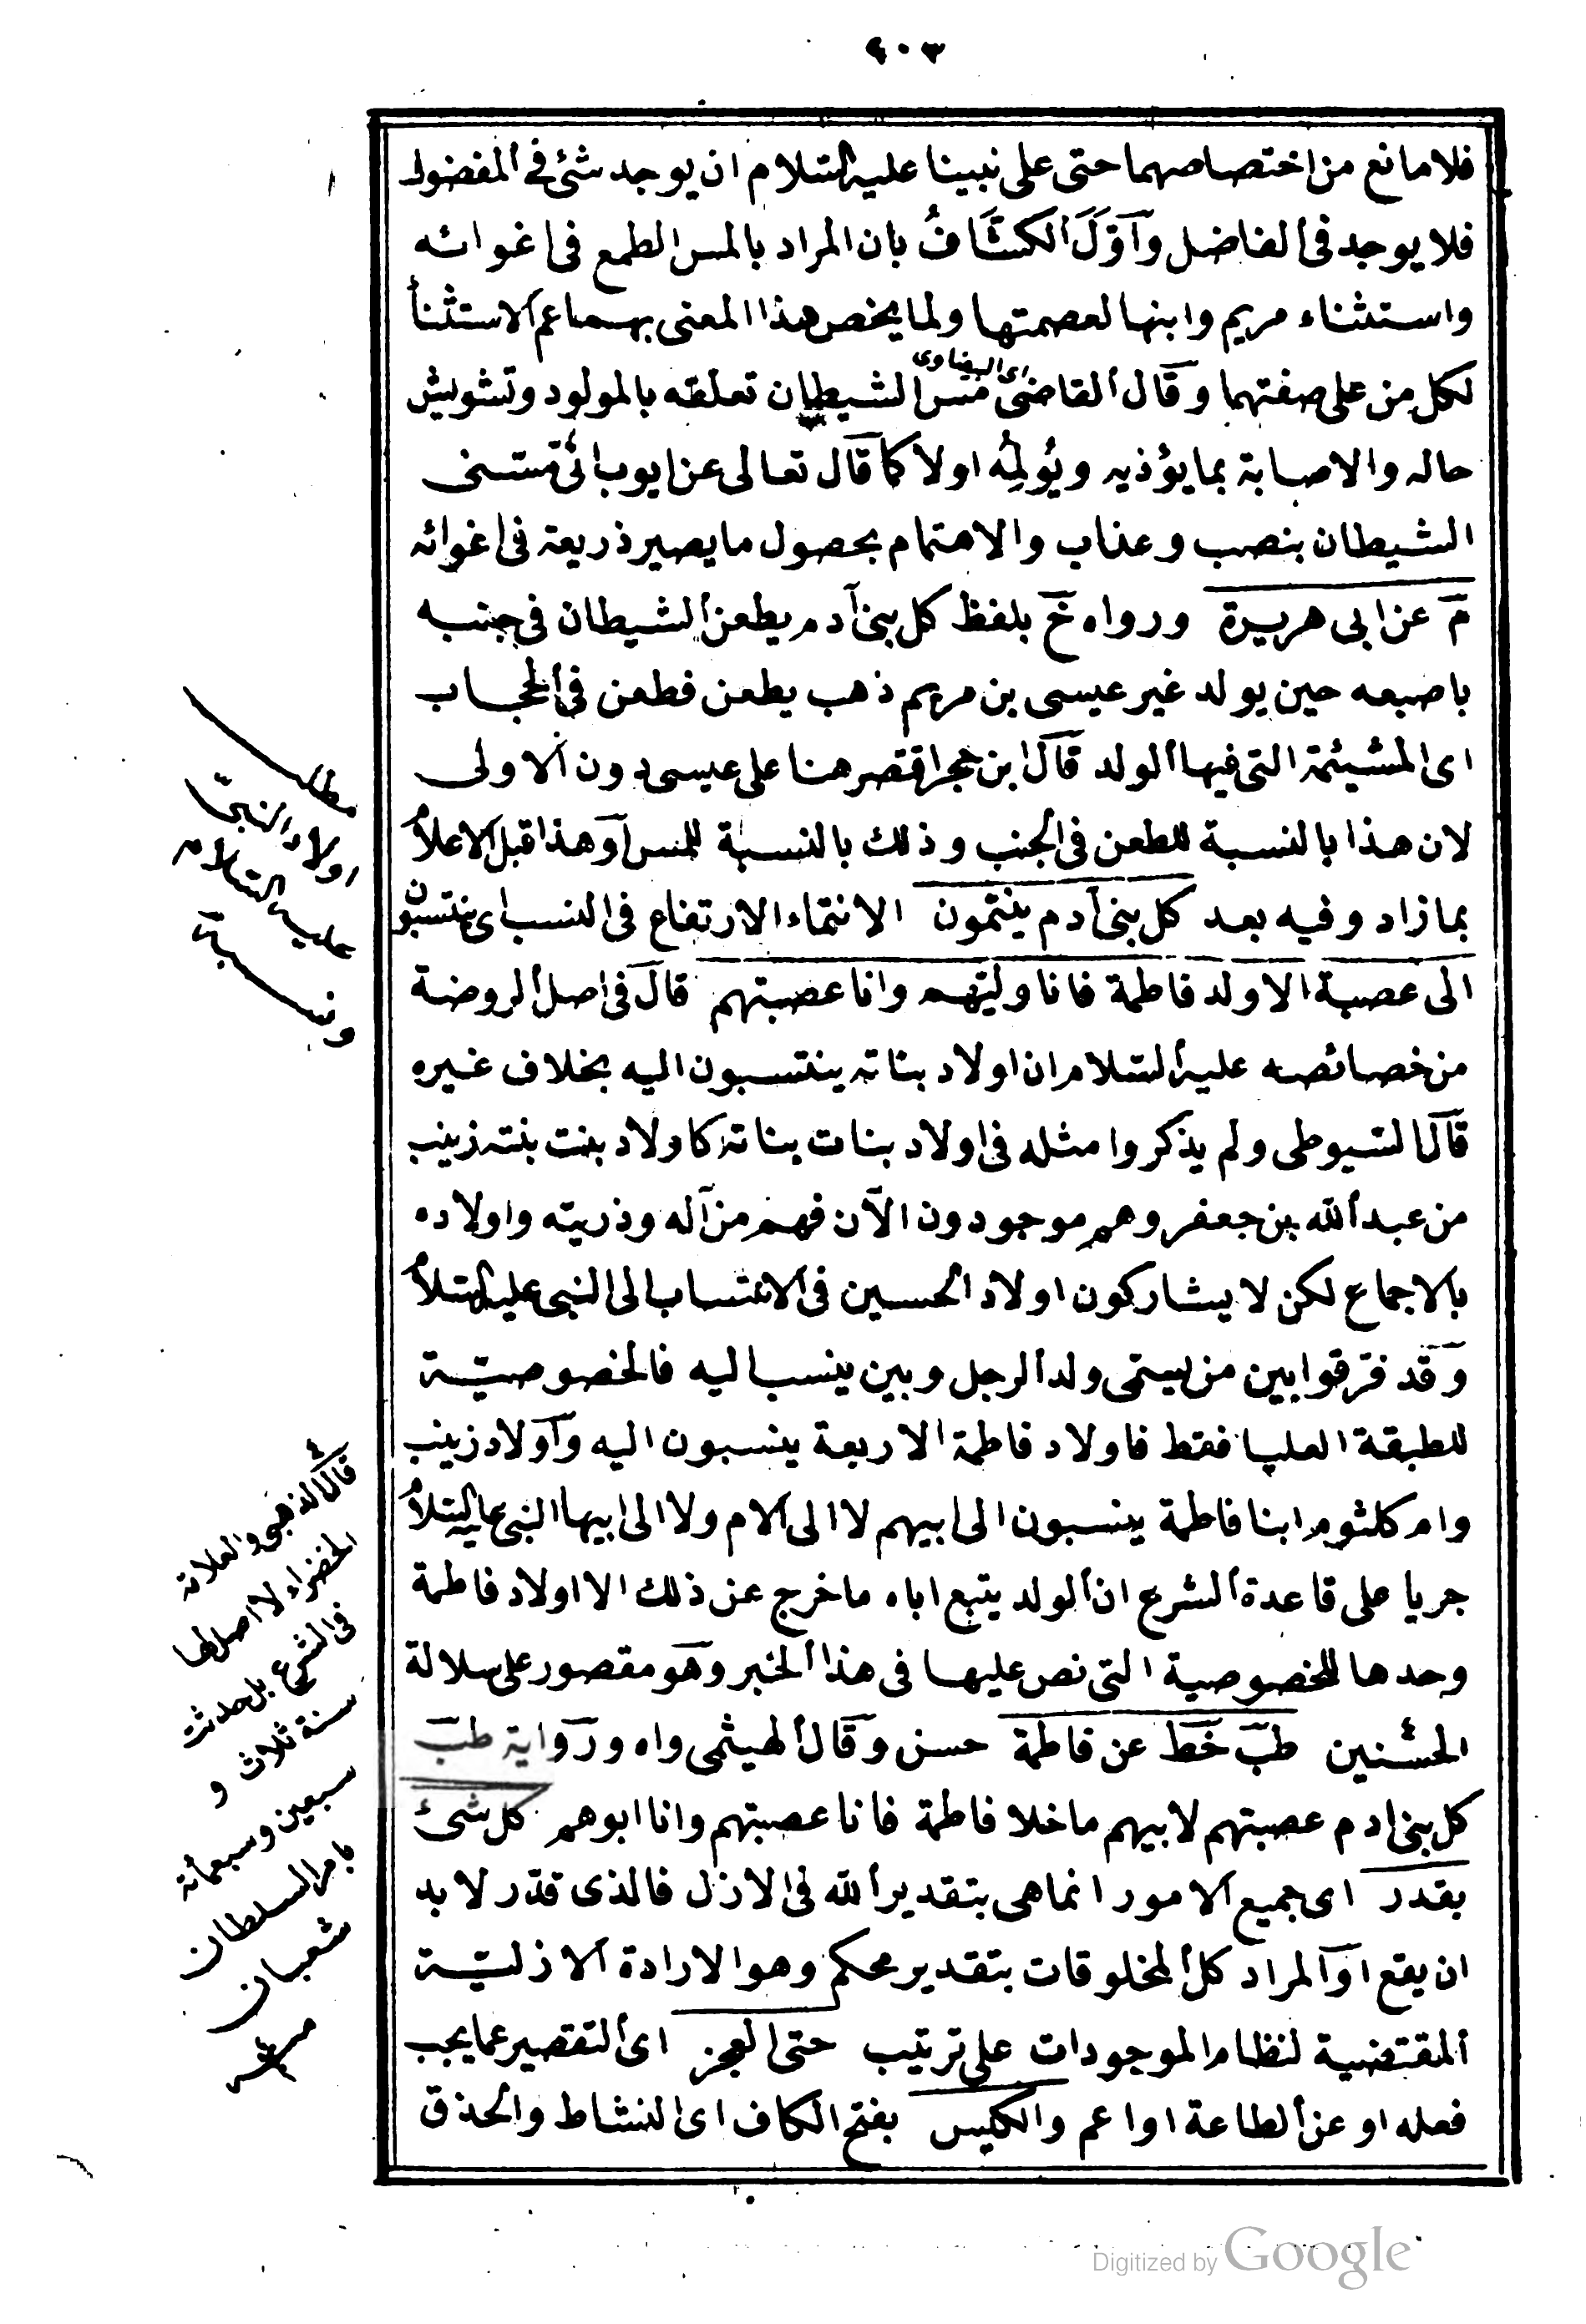 ٤٠٣
فلا مانع من اختصاصهما حتى على نبينا عليه السلام ان يوجد شئ في المفضول
فلا يوجد في الفاضل وَاَوَّلَ الكشافُ بان المراد بالمس الطمع فى اغوائه
واستثناء مريم وابنها لعصمتها ولما يخص هذا المعنى بهما عم الاستثنأ
لكل من على صفتهما وقال القاضى مس الشيطان تعلقه بالمولود وتشويش
اى البيضاوى
حاله والاصابة بما يؤذيه ويُولِمُه اولا كما قال تعالى عن ايوب انى مسنى
الشيطان بنصب وعذاب والاهتمام بحصول ما يصير ذريعة فى اغوائه
م عن ابى هريرة ورواه خ بلفظ كل بنى آدم يطعن الشيطان فى جنبه
باصبعه حين يولد غير عيسى بن مريم ذهب يطعن فطعن فى الحجاب
اى المشيئمة التى فيها الولد قال ابن حجر اقتصر هنا على عيسى دون الاولى
لان هذا بالنسبة للطعن فى الجنب وذلك بالنسبة للمس او هذا قبل الاعلا
بما زاد وفيه بعد كل بنى آدم ينتمون الانتماء الارتفاع فى النسب اى ينتسبون
الى عصبة الا ولد فاطمة فانا وليّهم وانا عصبتهم قال فى اصل الروضة
من خصائصه عليه السلام ان اولاد بناته ينتسبون اليه بخلاف غيره
قال السيوطى ولم يذكروا مثله فى اولاد بنات بناته كاولاد بنت بنته زينب
من عبد الله بن جعفر وهم موجودون الآن فهم من آله وذريته واولاده
بالاجماع لكن لا يشاركون اولاد الحسين فى الانتساب الى النبى عليه السلا
وقد فرقوا بين من يسمى ولد الرجل وبين ينسب اليه فالخصوصيّة
للطبقة العليا فقط فاولاد فاطمة الاربعة ينسبون اليه واولاد زينب
وام كلثوم ابنا فاطمة ينسبون الى ابيهم لا الى الام ولا الى ابيها النبى عليه السلا
جريا على قاعدة الشرع ان الولد يتبع اباه ما خرج عن ذلك الا اولاد فاطمة
وحدها للخصوصية التى نص عليها فى هذا الخبر وهو مقصور على سلالة
الحسنين طب خط عن فاطمة حسن وقال الهيثمى واه ورواية طب
كل بنى ادم عصبتهم لابيهم ما خلا فاطمة فانا عصبتهم وانا ابوهم كل شئ
بقدر اى جميع الامور انما هى بتقدير الله فى الازل فالذى قدّر لا بد
ان يقع او المراد كل المخلوقات بتقدير محكم وهو الارادة الازليّة
المقتضية لنظام الموجودات على ترتيب حتى العجز اى التقصير عما يجب
فعله او عن الطاعة او اعم والكيس بفتح الكاف اى النشاط والحذق
مطلب
اولاد النبىّ
عليه السلام
ونسبته
قال الذهبى والعلامة
الخضراء لا اصل لها
فى الشرع بل حدثت
سنة ثلاث و
سبعين وسبعمأة
بامر السلطان
شعبان
Digitized by Google